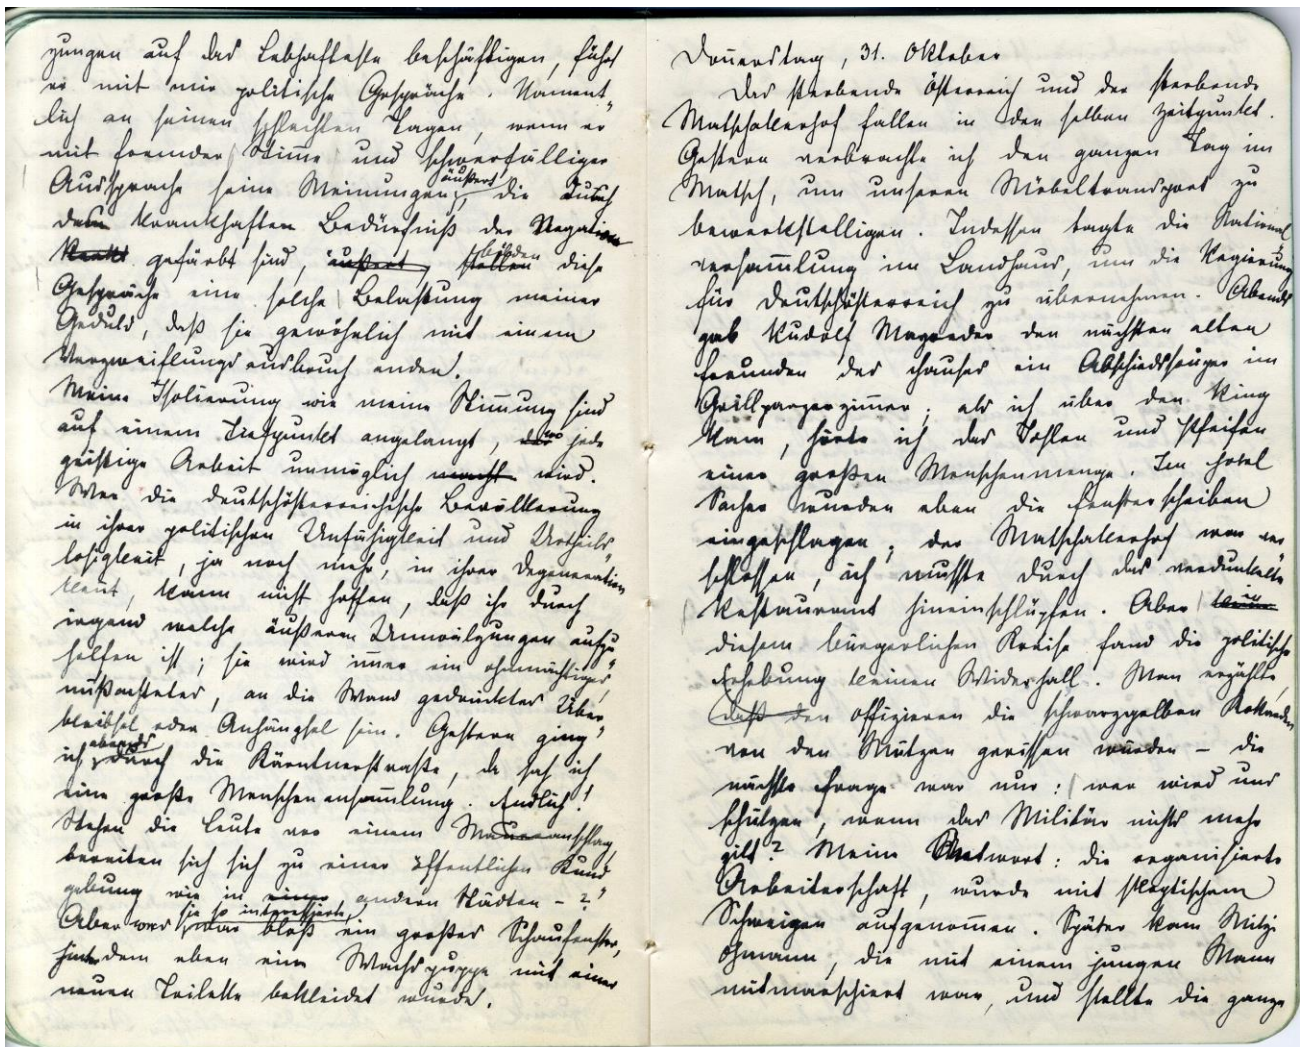 zungen auf das Lebhafteste beschäftigen, führt
er mit mir politische Gespräche. Nament-
lich an seinen schlechten Tagen, wenn er
mit fremder Stimme und schwerfälliger
Aussprache seine Meinungen äußert, die durch
das krankhaften Bedürfniß der Negation
gefärbt sind, äußert, stellen bilden diese
Gespräche eine solche Belastung meiner
Geduld, daß sie gewöhnlich mit einem
Verzweiflungsausbruch enden.
Meine Isolierung wie meine Stimmung sind
auf einem Tiefpunkt angelangt, wo jede
geistige Arbeit unmöglich macht wird.
Wer die deutschösterreichische Bevölkerung
in ihrer politischen Unfähigkeit und Urtheils-
losigkeit, ja noch mehr, in ihrer Degeneration
kennt, kann nicht hoffen, daß ihr durch
irgend welche äußeren Umwälzungen aufzu-
helfen ist; sie wird immer ein ohnmächtiges,
mißachtetes, an die Wand gedrücktes Über-
bleibsel oder Anhängsel sein. Gestern ging
ich abends durch die Kärntnerstraße, da sah ich
eine große Menschenansammlung. Endlich!
Stehen die Leute vor einem Maueranschlag,
bereiten sich sich zu einer öffentlichen Kund-
gebung wie in einer andern Städten – ?
Aber was sie so interessierte, war bloß ein großes Schaufenster,
hinter dem eben eine Wachspuppe mit einer
neuen Toilette bekleidet wurde.
Donnerstag, 31. Oktober
Das sterbende Österreich und der sterbende
Matschakerhof fallen in den selben Zeitpunkt.
Gestern verbrachte ich den ganzen Tag im
Matsch, um unseren Möbeltransport zu
bewerkstelligen. Indessen tagte die National-
versammlung im Landhaus, um die Regierung
für Deutschösterreich zu übernehmen. Abends
gab Rudolf Mayreder den nächsten alten
Freunden des Hauses ein Abschiedssouper im
Grillparzerzimmer; als ich über den Ring
kam, hörte ich das Johlen und Pfeifen
einer großen Menschenmenge. Im Hotel
Sacher wurden eben die Fensterscheiben
eingeschlagen; der Matschakerhof war ver-
schlossen, ich mußte durch das verdunkelte
Restaurant hineinschlüpfen. Aber in
diesem bürgerlichen Kreise fand die politische
Erhebung keinen Widerhall. Man erzählte,
daß den Offizieren die schwarzgelben Kokarden
von den Mützen gerissen wurden – die
nächste Frage war nur: wer wird uns
schützen, wenn das Militär nichts mehr
gilt? Meine Antwort: die organisierte
Arbeiterschaft, wurde mit skeptischem
Schweigen aufgenommen. Später kam Mitzi
Ohmann, die mit einem jungen Mann
mitmarschiert war, und stellte die ganze